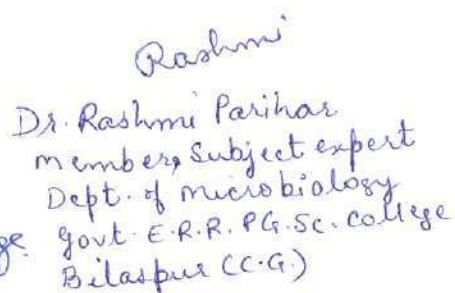 Rashmi
Dr. Rashmi Parihar
member, Subject expert
Dept. of microbiology
Govt. E.R.R. PG. Sc. College
Bilaspur (C.G.)